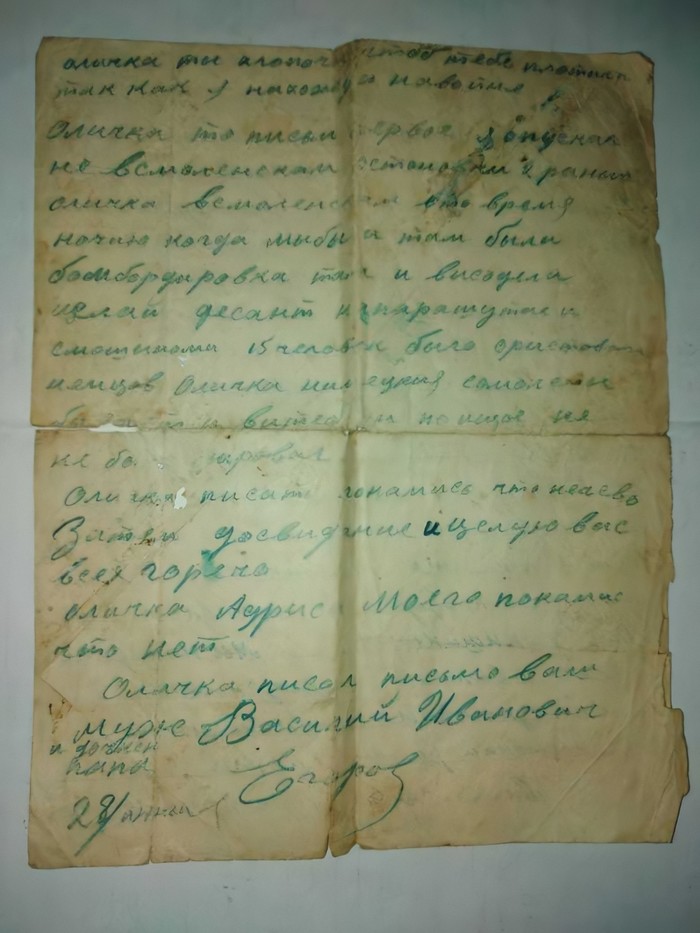 оличка ты хлопочи чтоб тебе платили
так как я нахожуся навойне
Оличка то письм первое я опускал
не всмоленскам 2
оличка всмоленскам ето время
ночию когда мы были там была
бомбордировка так и высодили
целай десант напарашутах и
смотинами 15 человек было
немцов Оличка немецкия самолеты
на ище не
не
Оличка писат покамись что нечево
Затем досвидание и целую вас
всех горячо
оличка Адриса Моего покамис
что нет
Оличка писал письмо ваш
муж Василий Иванович
и дочкен
папа
Егоров
28/